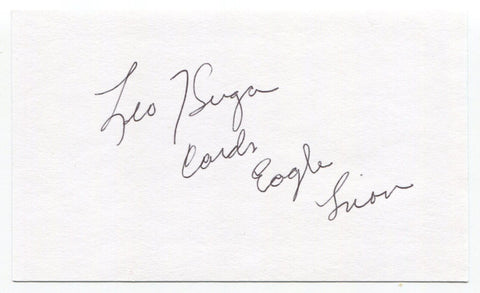 Leo Sugar
Cards
Eagle
Lion